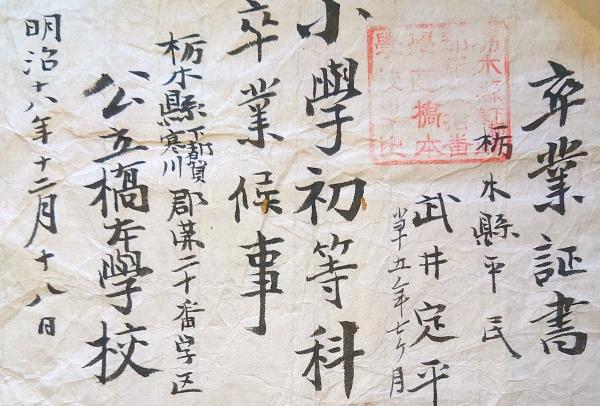 卒業証書
栃木縣平民
武井定平
十五年七ケ月
小學初等科
卒業候事
栃木縣下都賀寒川郡第二十番学区
公立橋本學校
明治十八年十二月十八日
橋本